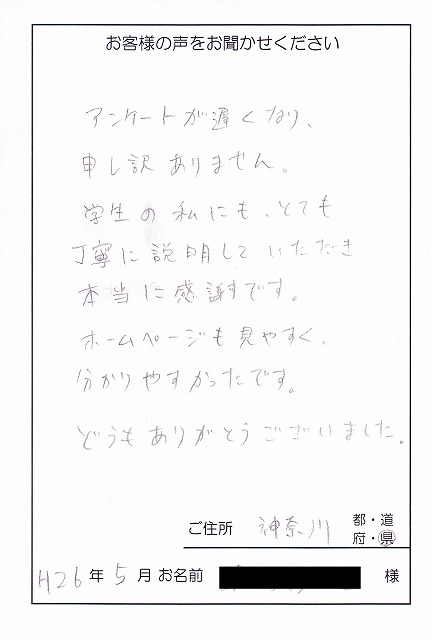 お客様の声をお聞かせください
アンケートが遅くなり、
申し訳ありません。
学生の私にも、とても
丁寧に説明していただき
本当に感謝すです。
ホームページも見やすく、
分かりやすかったです。
どうもありがとうございました。
ご住所 神奈川 都・道
府・県
H26年5月お名前 様